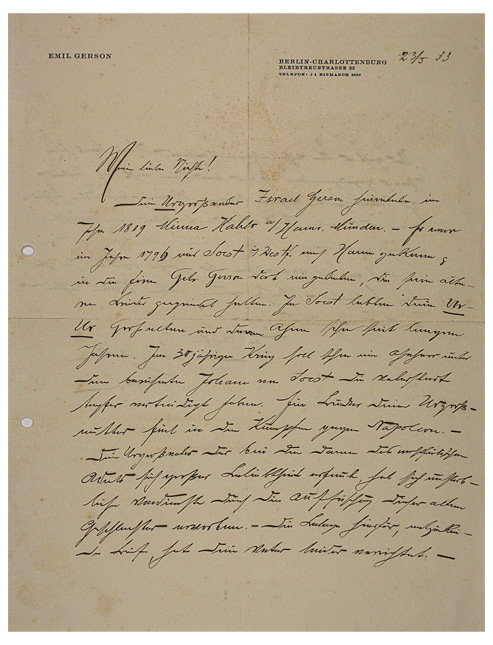 EMIL GERSON
BERLIN-CHARLOTTENBURG
BLEIBTREUSTRASSE 33
TELEFON: J 1 BISMARCK
23/5 33
Mein liebe Nichte!
Dein Urgroßvater Israel Gerson heiratete im
Jahr 1819 Minna Hahlo a/ Hann. Münden. – Er war
im Jahre 1796 aus Soest i/Westf. nach Hamm gekommen
in die Firma Gebr. Gerson dort, die sein älte-
rer Bruder gegründet hatten. In Soest lebten Dein Ur-
Ur Großeltern und deren Ahnen schon seit langen
Jahren. Im 30 jährigen Krieg soll schon ein Ahnherr unter
dem berühmten Johann von Soest die Vaterstadt
tapfer verteidigt haben. Ein Bruder Deiner Urgroß-
mutter fiel in den Kämpfen gegen Napoleon. –
Dein Urgroßvater der bei den Damen des westfälischen
Adels sich großer Beliebtheit erfreute hat sich unsterb-
liche Verdienste durch die Auffrischung dieser alten
Geschlechter erworben. – Die
hat Dein Vater leider vernichtet. –